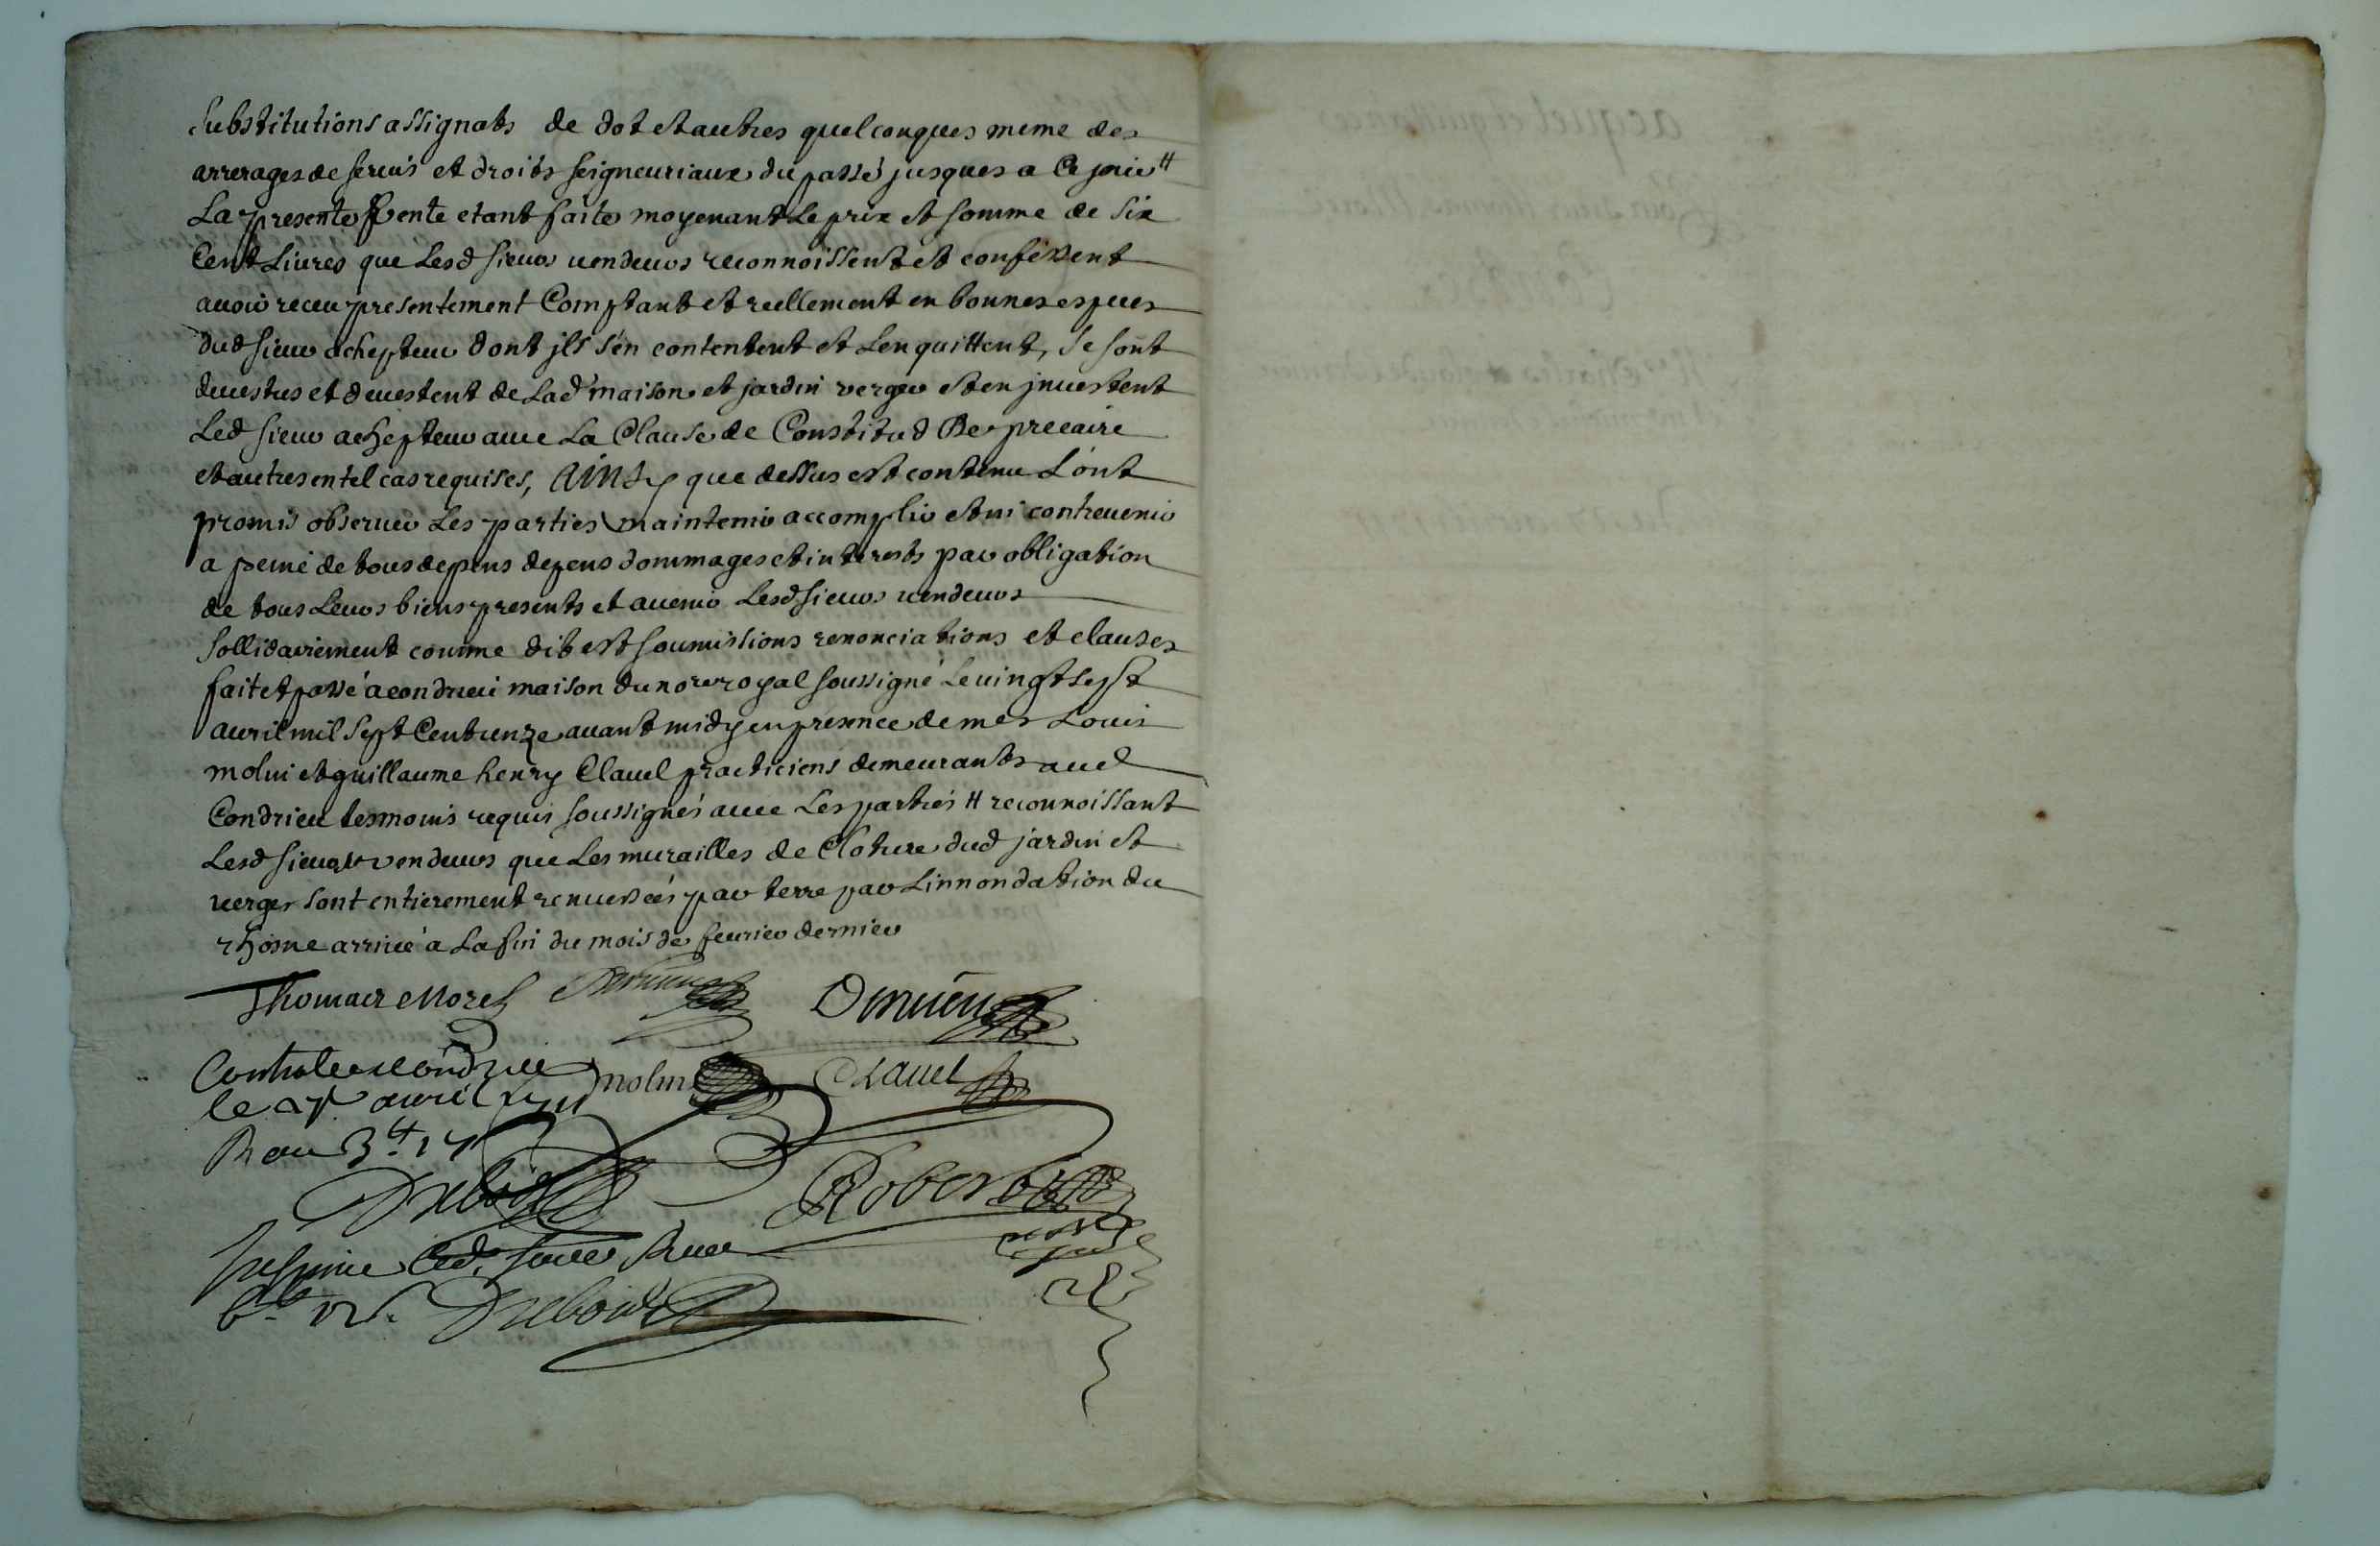 Substitutions assignats de dot et autres quelconques meme des
arrerages de servis et droits seigneuriaux du passé jusques a Ce jour
La presente Vente etant faite moyenant Le prix et somme de Six
Cent Livres que Lesd sieurs vendeurs reconnoissent et confessent
avoir receu presentement Comptant et reellement en bonnes especes
dud sieur achepteur dont jls s'en contentent et L'en quittent, Se sont
devestus et devestent de Lad maison et jardin verger et en jnvestent
Led sieur achepteur avec La Clause de Constitud De precaire
et autres en tel cas requises, AINSy que dessus est contenu L'ont
promis observer Les parties maintenir accomplir et ni contrevenir
a peine de tous depens depens dommages et interests par obligation
de tous Leurs biens presents et avenir Lesd sieurs vendeurs
Sollidairement comme dit est soumissions renonciations et clauses
fait et passé a condrieu maison du nore royal soussigné Le vingt sept
avril mil Sept Cent unze avant midy en presence de mes Louis
molin et guillaume henry Clavel practiciens demeurants aud
Condrieu tesmoins requis soussignés avec Les parties H reconnoissant
Lesd sieurs vendeurs que Les murailles de Cloture dud jardin et
verger sont entierement renversées par terre par L'innondation du
rhosne arrivé a La fin du mois de fevrier dernier
Thomas Morel
Controlé a Condrieu molin Clavel
le avril
Robert